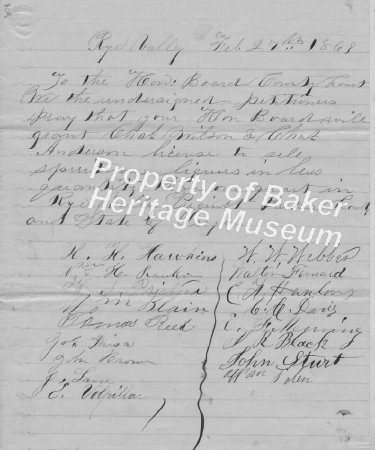 Rye Valley Feb 27th 1868
To the Hon. Board County Court
We the undersigned petitioners
pray that your Hon Board will
grant Chas Wilson & Chas
Anderson license to sell
spirituous liquors in less
quantity than one quart in
Rye Valley Precinct Baker County
and State of
Property of Baker
Heritage Museum
K. K. Hawkins
Wm H.
Blain
Thomas Reed
John
John Brown
J. Lane
E.
W. W. Webber
Walter
C. Hanlon
C. C. Davis
C. F.
J. R. Black
John Sturt